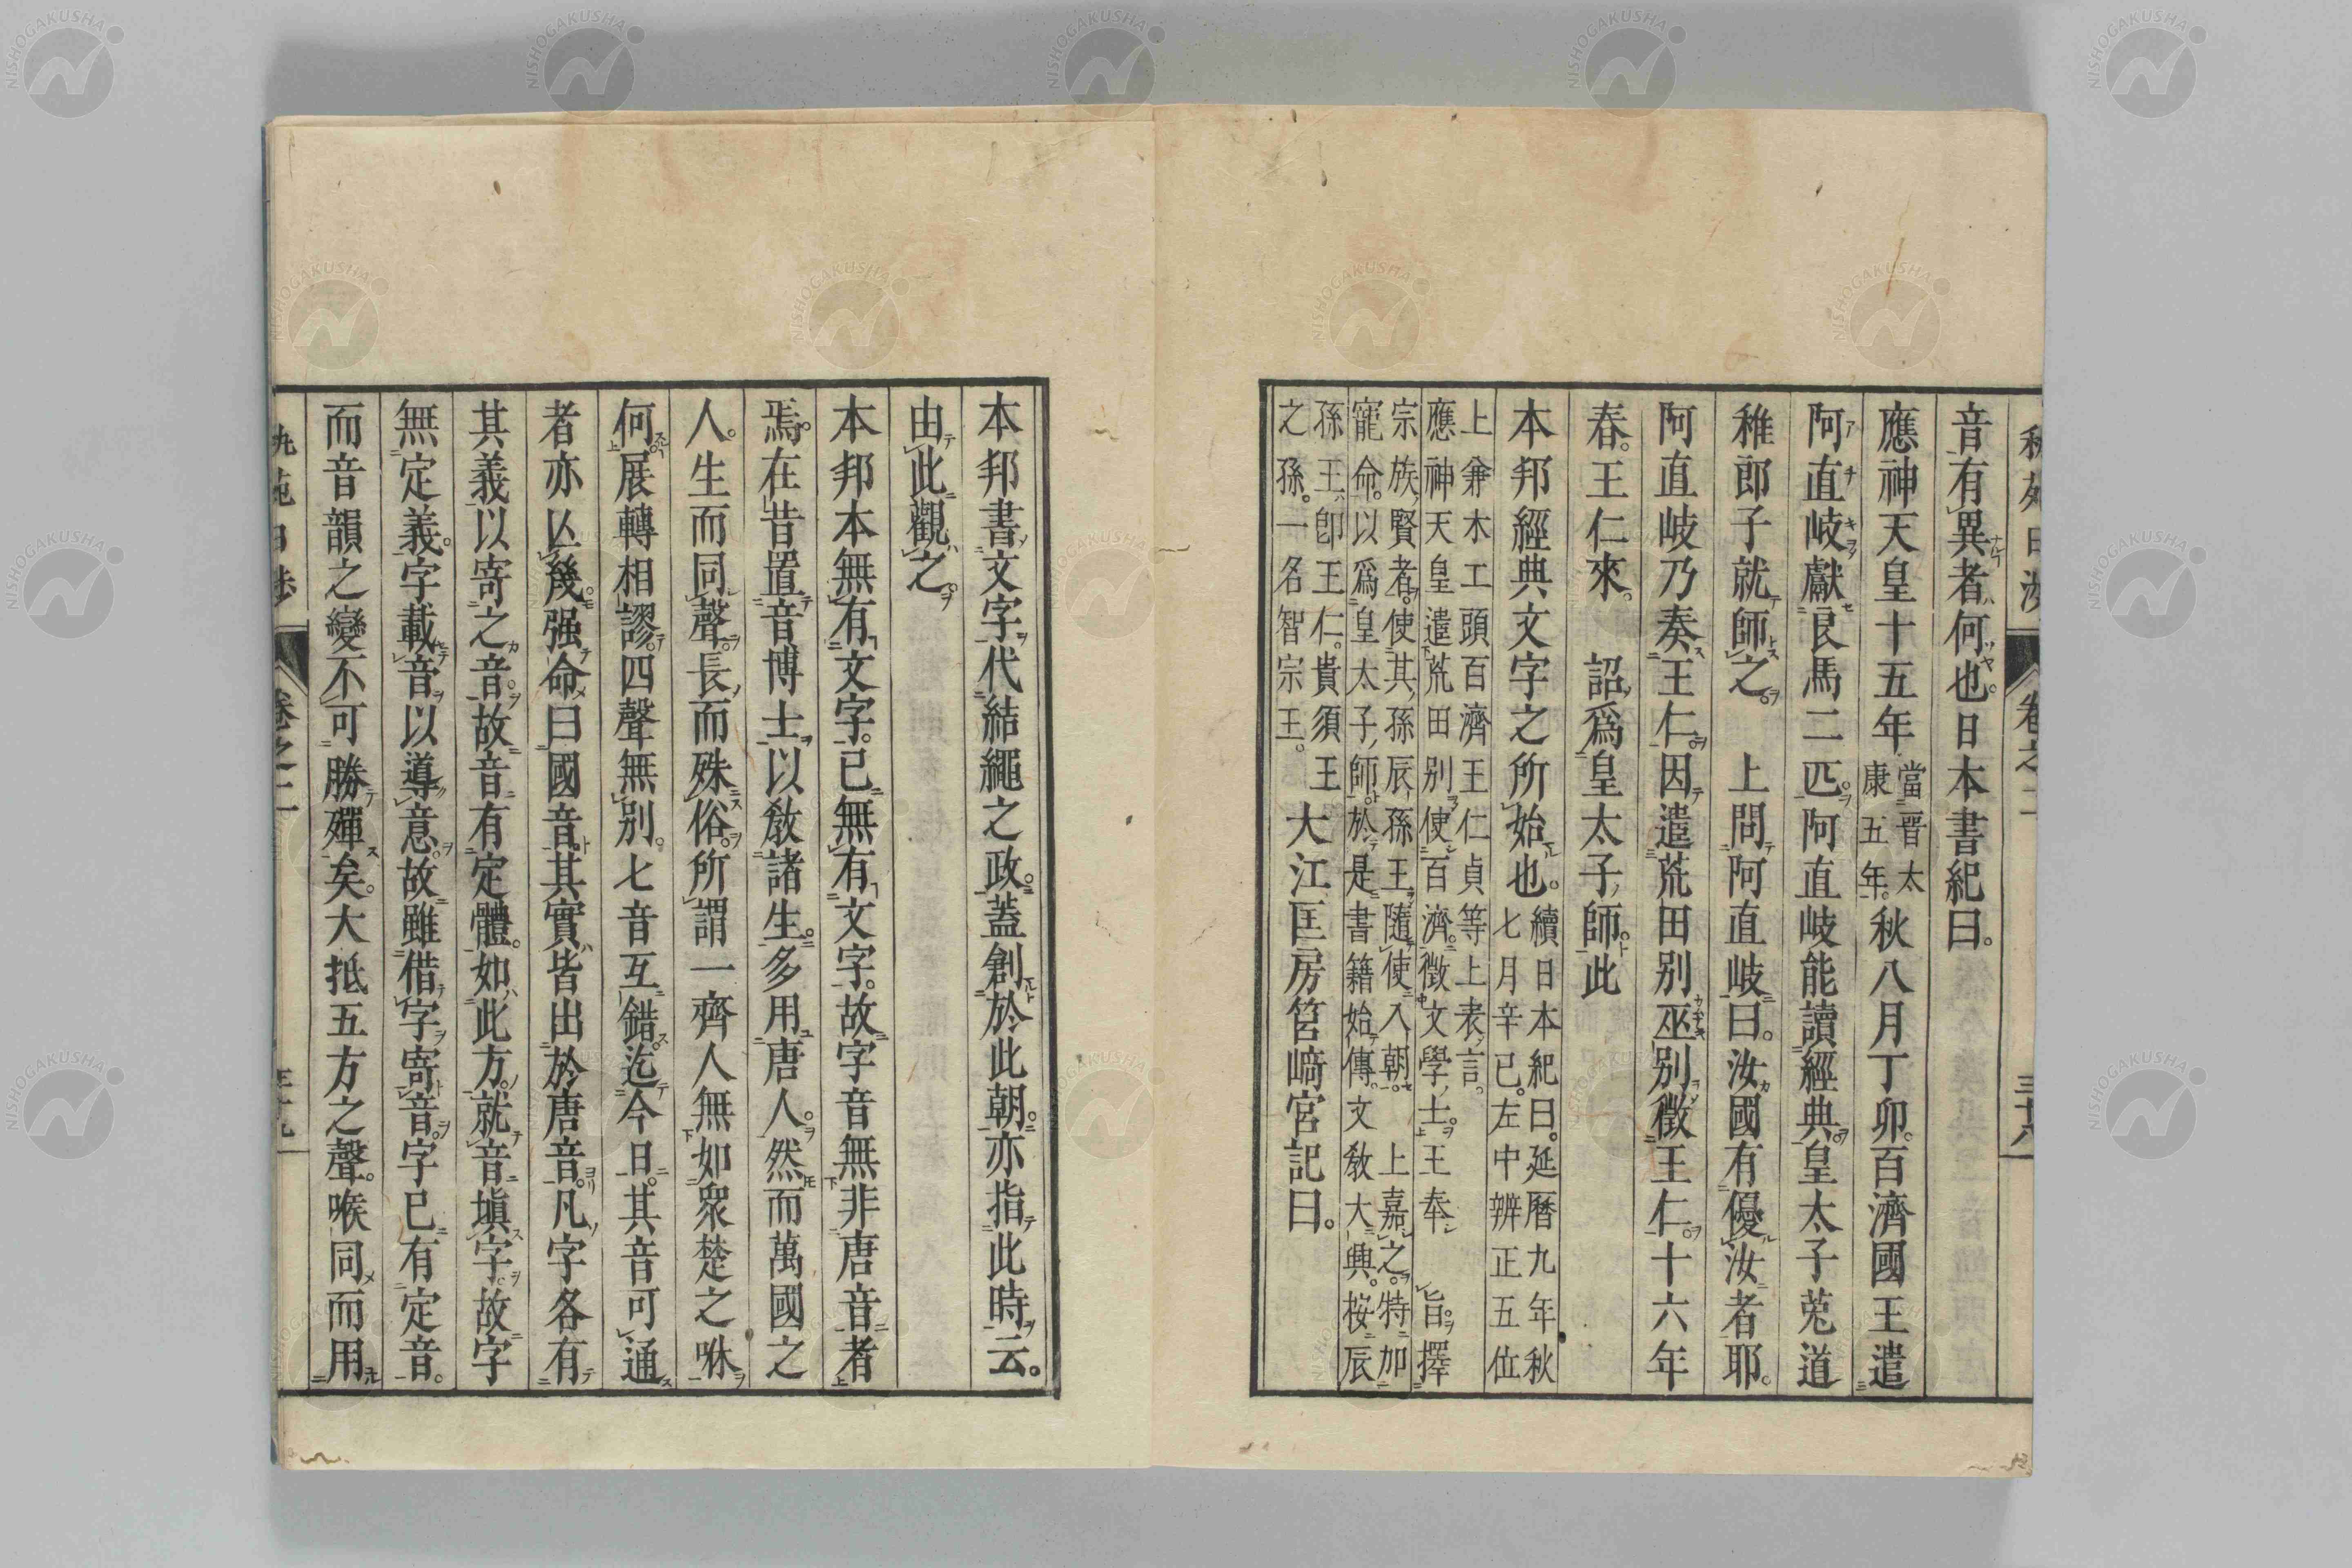 音有異者何也日本書紀曰
應神天皇十五年當晋太康五年秋八月丁卯百濟國王遣
阿直岐獻良馬二匹阿直岐能讀經典皇太子菟道
稚郎子就師之　上問阿直岐曰汝國有優汝者耶
阿直岐乃奏王仁因遣荒田别巫别徵王仁十六年
春王仁來　詔爲皇太子師此
本邦經典文字之所始也續日本紀曰延曆九年秋
七月辛巳左中辨正五位
上兼木工頭百濟王仁貞等上表言
應神天皇遣荒田别使百濟徵文學士王奉　旨擇
宗族賢者使其孫辰孫王隨使入朝　上嘉之特加
寵命以爲皇太子師於是書籍始傳文敎大興桉辰
孫王卽王仁貴須王
之孫一名智宗王
大江匡房筥崎宮記曰
卷之二
三十八
本邦書文字代結繩之政蓋創於此朝亦指此時云
由此觀之
本邦本無有文字已無有文字故字音無非唐音者
焉在昔置音博士以敎諸生多用唐人然而萬國之
人生而同聲長而殊俗所謂一齊人無如衆楚之咻
何展轉相謬四聲無别七音互錯迄今日其音可通
者亦亾幾强命曰國音其實皆出於唐音凡字各有
其義以寄之音故音有定體如此方就音塡字故字
無定義字載音以導意故雖借字寄音字已有定音
而音韻之變不可勝殫矣大抵五方之聲喉同而用
卷之二
NISHOGAKUSHA